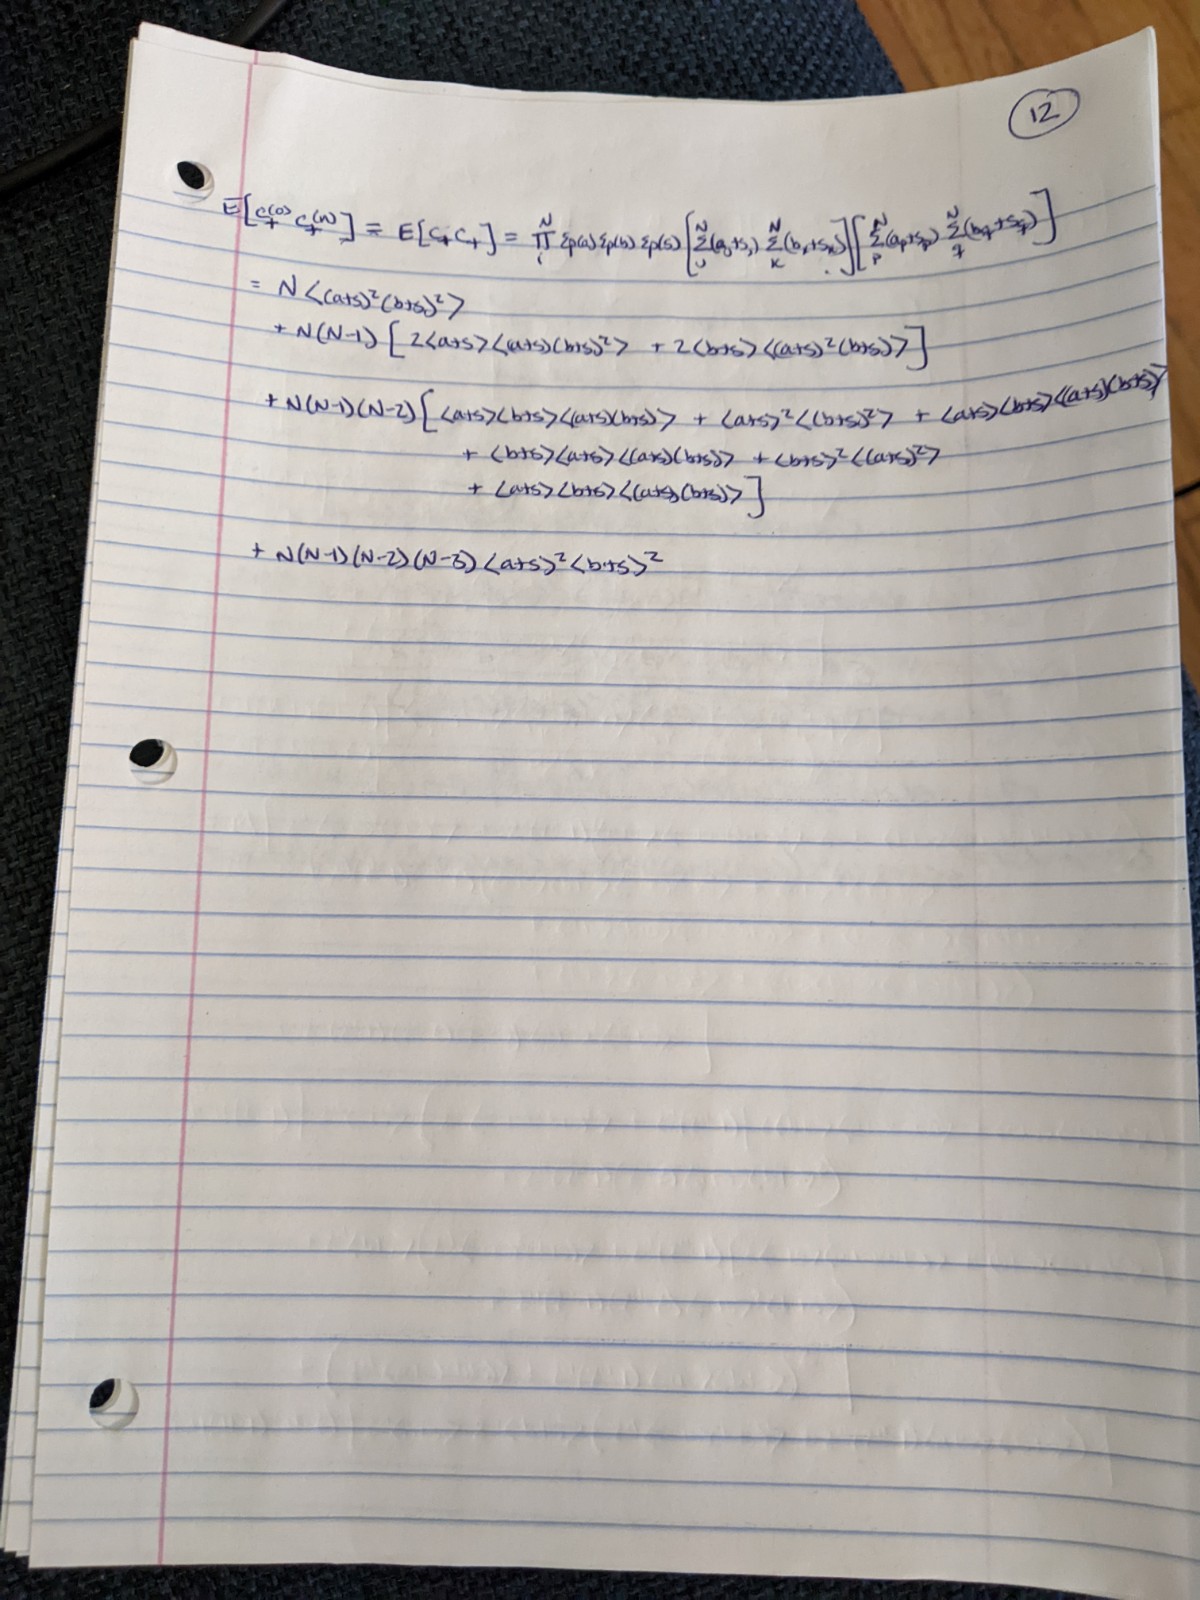 12
E[C₊⁽⁰⁾ C₊⁽ⁿ⁾] ≡ E[C₊ C₊] = ∏ᵢᴺ Σp(a) Σp(b) Σp(s) [Σⱼᴺ(aⱼ+sⱼ) Σₖᴺ(bₖ+sₖ)][Σₚᴺ(aₚ+sₚ) Σ_qᴺ(b_q+s_q)]
= N<(a+s)²(b+s)²>
+ N(N-1) [2<a+s><(a+s)(b+s)²> + 2<b+s><(a+s)²(b+s)>]
+ N(N-1)(N-2)[<a+s><b+s><(a+s)(b+s)> + <a+s>²<(b+s)²> + <a+s><b+s><(a+s)(b+s)>
+ <b+s><a+s><(a+s)(b+s)> + <b+s>²<(a+s)²>
+ <a+s><b+s><(a+s)(b+s)>]
+ N(N-1)(N-2)(N-3)<a+s>²<b+s>²